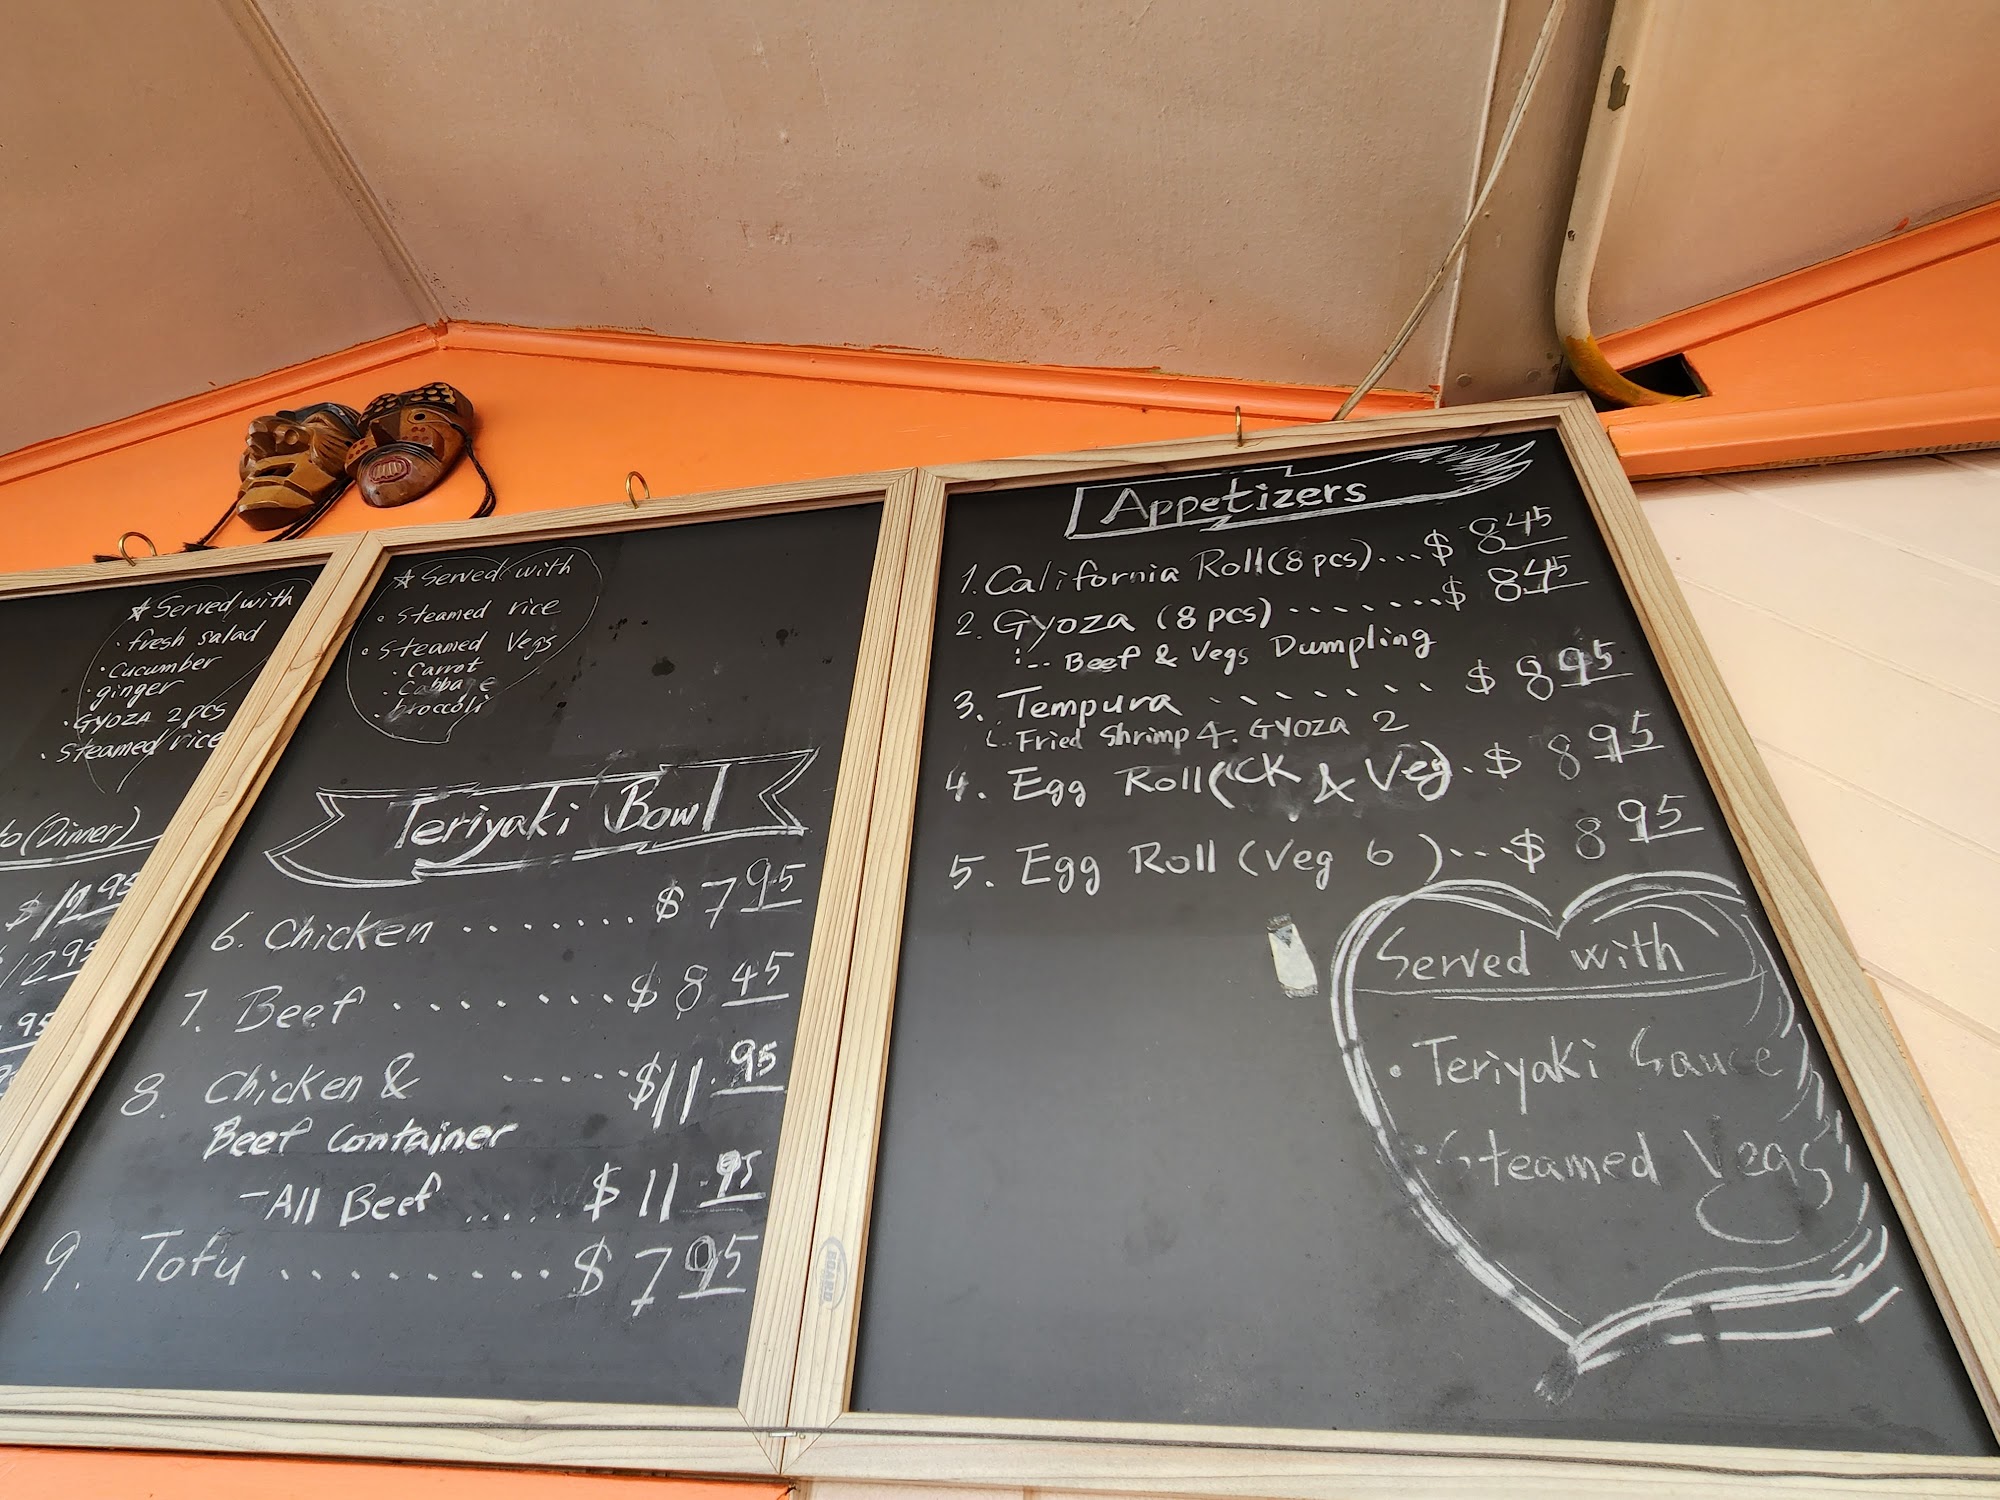 ★ Served with
· fresh salad
· Cucumber
· ginger
· Gyoza 2 pcs
· Steamed rice
(Dinner)
$ 12.95
12.95
.95
★ Served with
◦ Steamed rice
◦ Steamed Vegs
· Carrot
· Cabbage
· broccoli
Teriyaki Bowl
6. Chicken ........ $ 7 95
7. Beef ......... $ 8 45
8. Chicken & ...... $11.95
Beef Container
- All Beef ..... $ 11.95
9. Tofu ......... $ 7 95
BOARD
Appetizers
1. California Roll (8 pcs)... $ 8 45
2. Gyoza (8 pcs) ........ $ 8 45
Beef & Vegs Dumpling
3. Tempura ........ $ 8 95
Fried Shrimp 4. Gyoza 2
4. Egg Roll (CK & Veg). $ 8 95
5. Egg Roll (Veg 6 )...$ 8 95
Served with
· Teriyaki Sauce
· Steamed Vegs